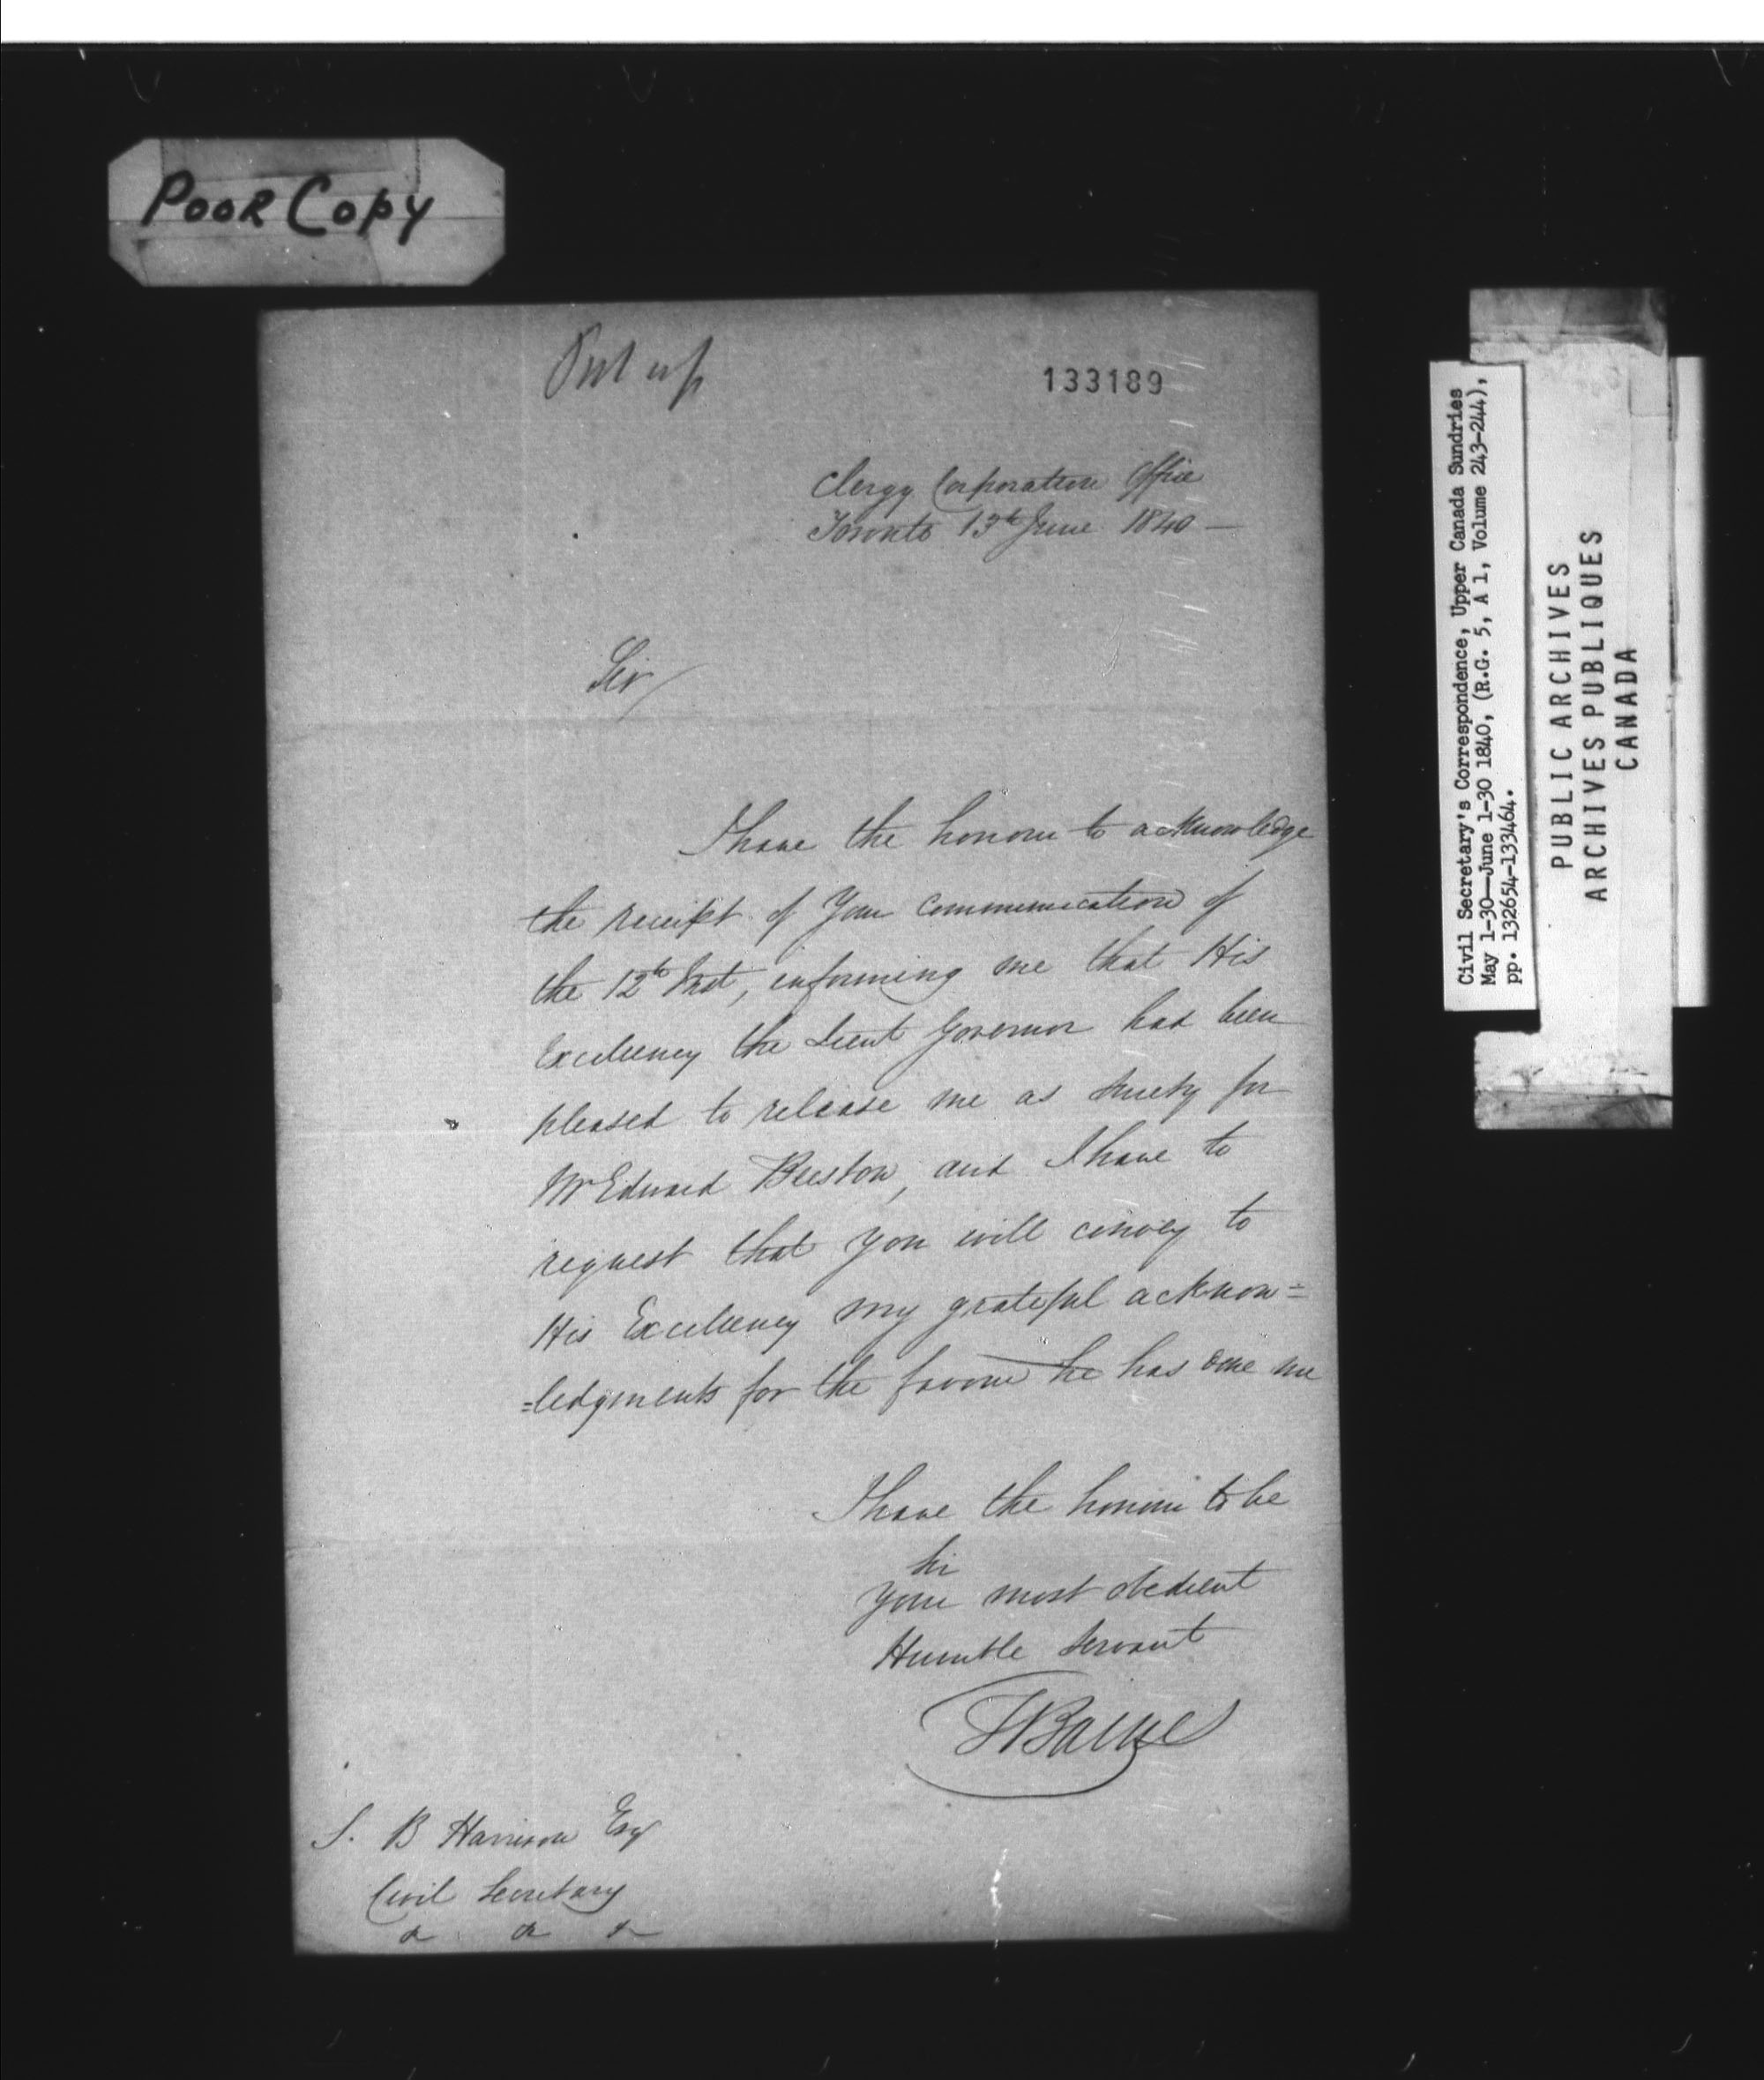 Poor Copy
Put up
133189
Clergy Corporation Office
Toronto 13th June 1840 —
Sir/
I have the honour to acknowledge
the receipt of Your Communication of
the 12th Inst, informing me that His
Excellency the Lieut Governor had been
pleased to release me as Surety for
Mr Edward Beeston, and I have to
request that you will convey to
His Excellency my grateful acknow=
=ledgments for the favour he has done me
I have the honour to be
Sir
Your most obedient
Humble Servant
T Baines
S. B Harrison Esqr
Civil Secretary
& & &
Civil Secretary's Correspondence, Upper Canada Sundries
May 1-30—June 1-30 1840, (R.G. 5, A 1, Volume 243-244),
pp. 132654-133464.
PUBLIC ARCHIVES
ARCHIVES PUBLIQUES
CANADA